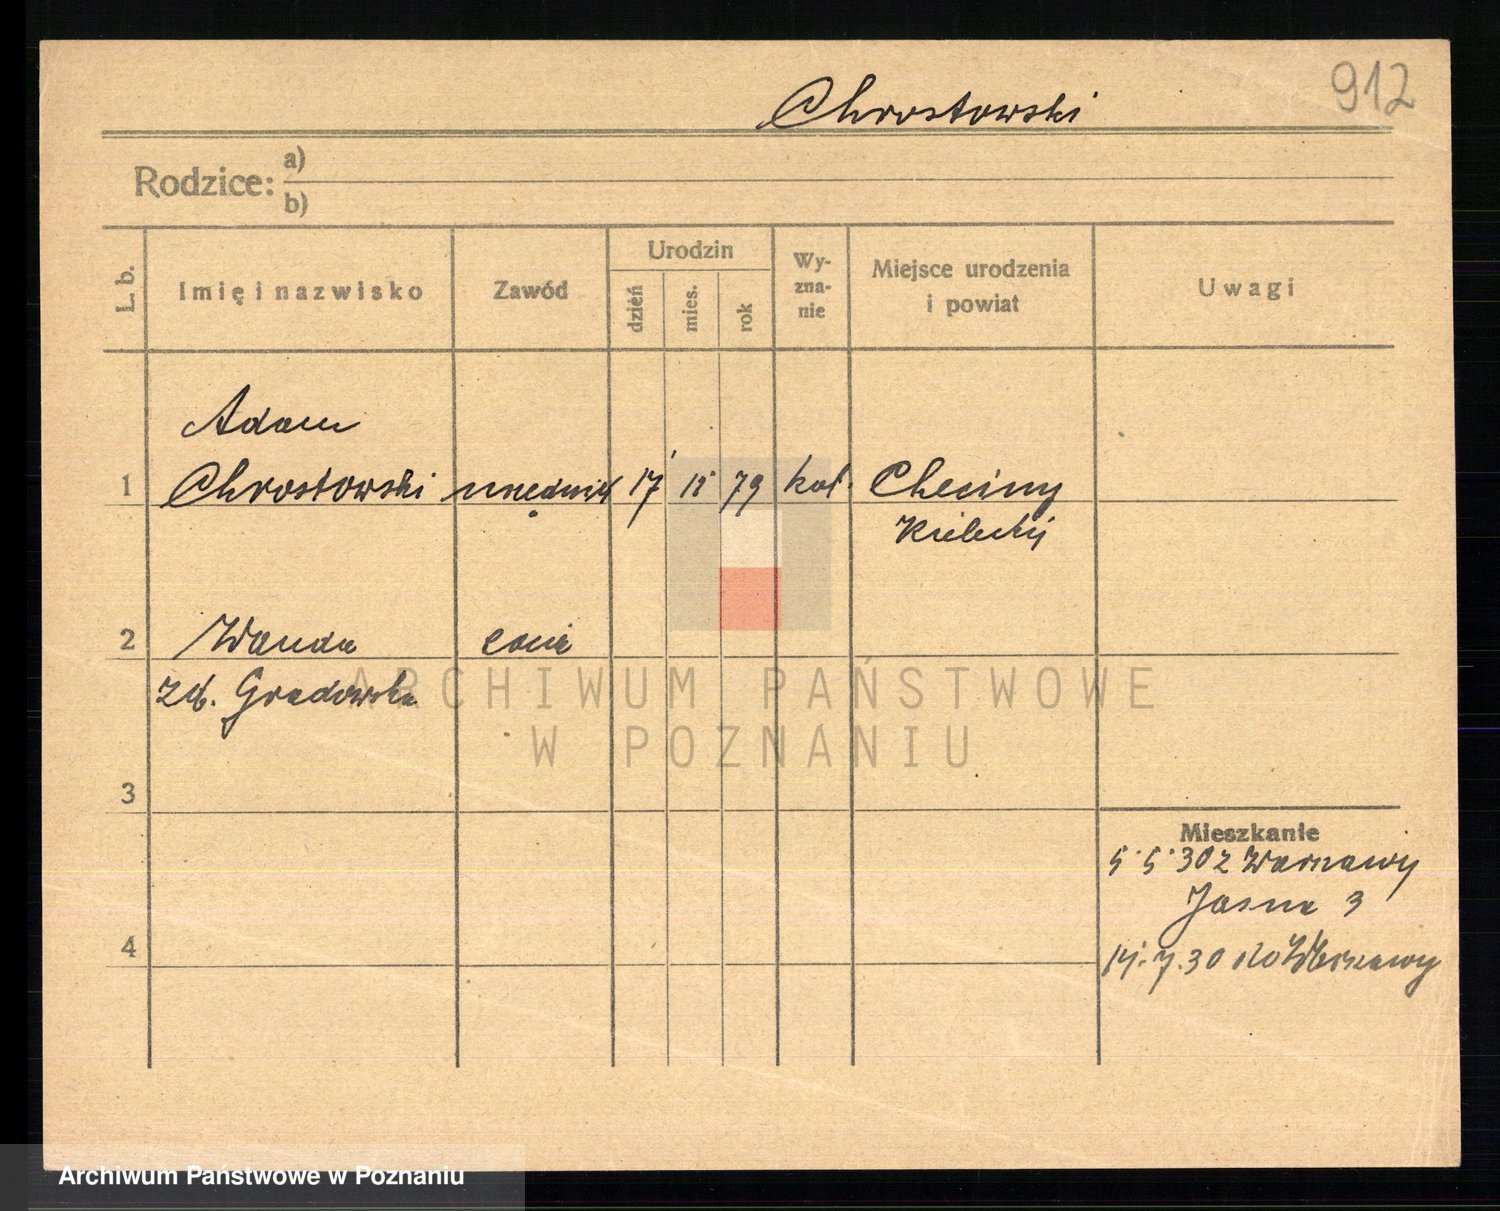 912
Chrostowski
Rodzice: a)
b)
L. b. Imię i nazwisko Zawód Urodzin dzień mies. rok Wy-zna-nie Miejsce urodzenia i powiat Uwagi
Adam
1 Chrostowski urzędnik 17 79 kat. Checiny
Kielecki
2 Wanda
zd. Gradowska
ARCHIWUM PAŃSTWOWE
W POZNANIU
3
Mieszkanie
5. 5. 30 z Warszawy
Jasna 3
4 14. 7. 30 do Warszawy
Archiwum Państwowe w Poznaniu